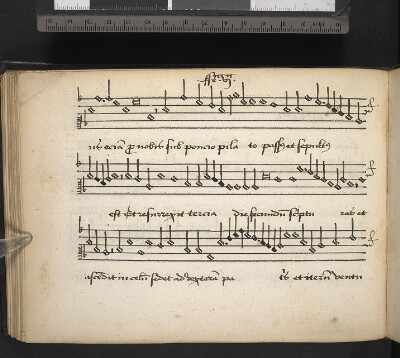 us etiā p nobis sub poncio pila to passus et sepultus
est Et resurrexit tercia die secundum scriptu ras et
ascēdit in celū sedet ad dexterā pa tris et iterū ventu